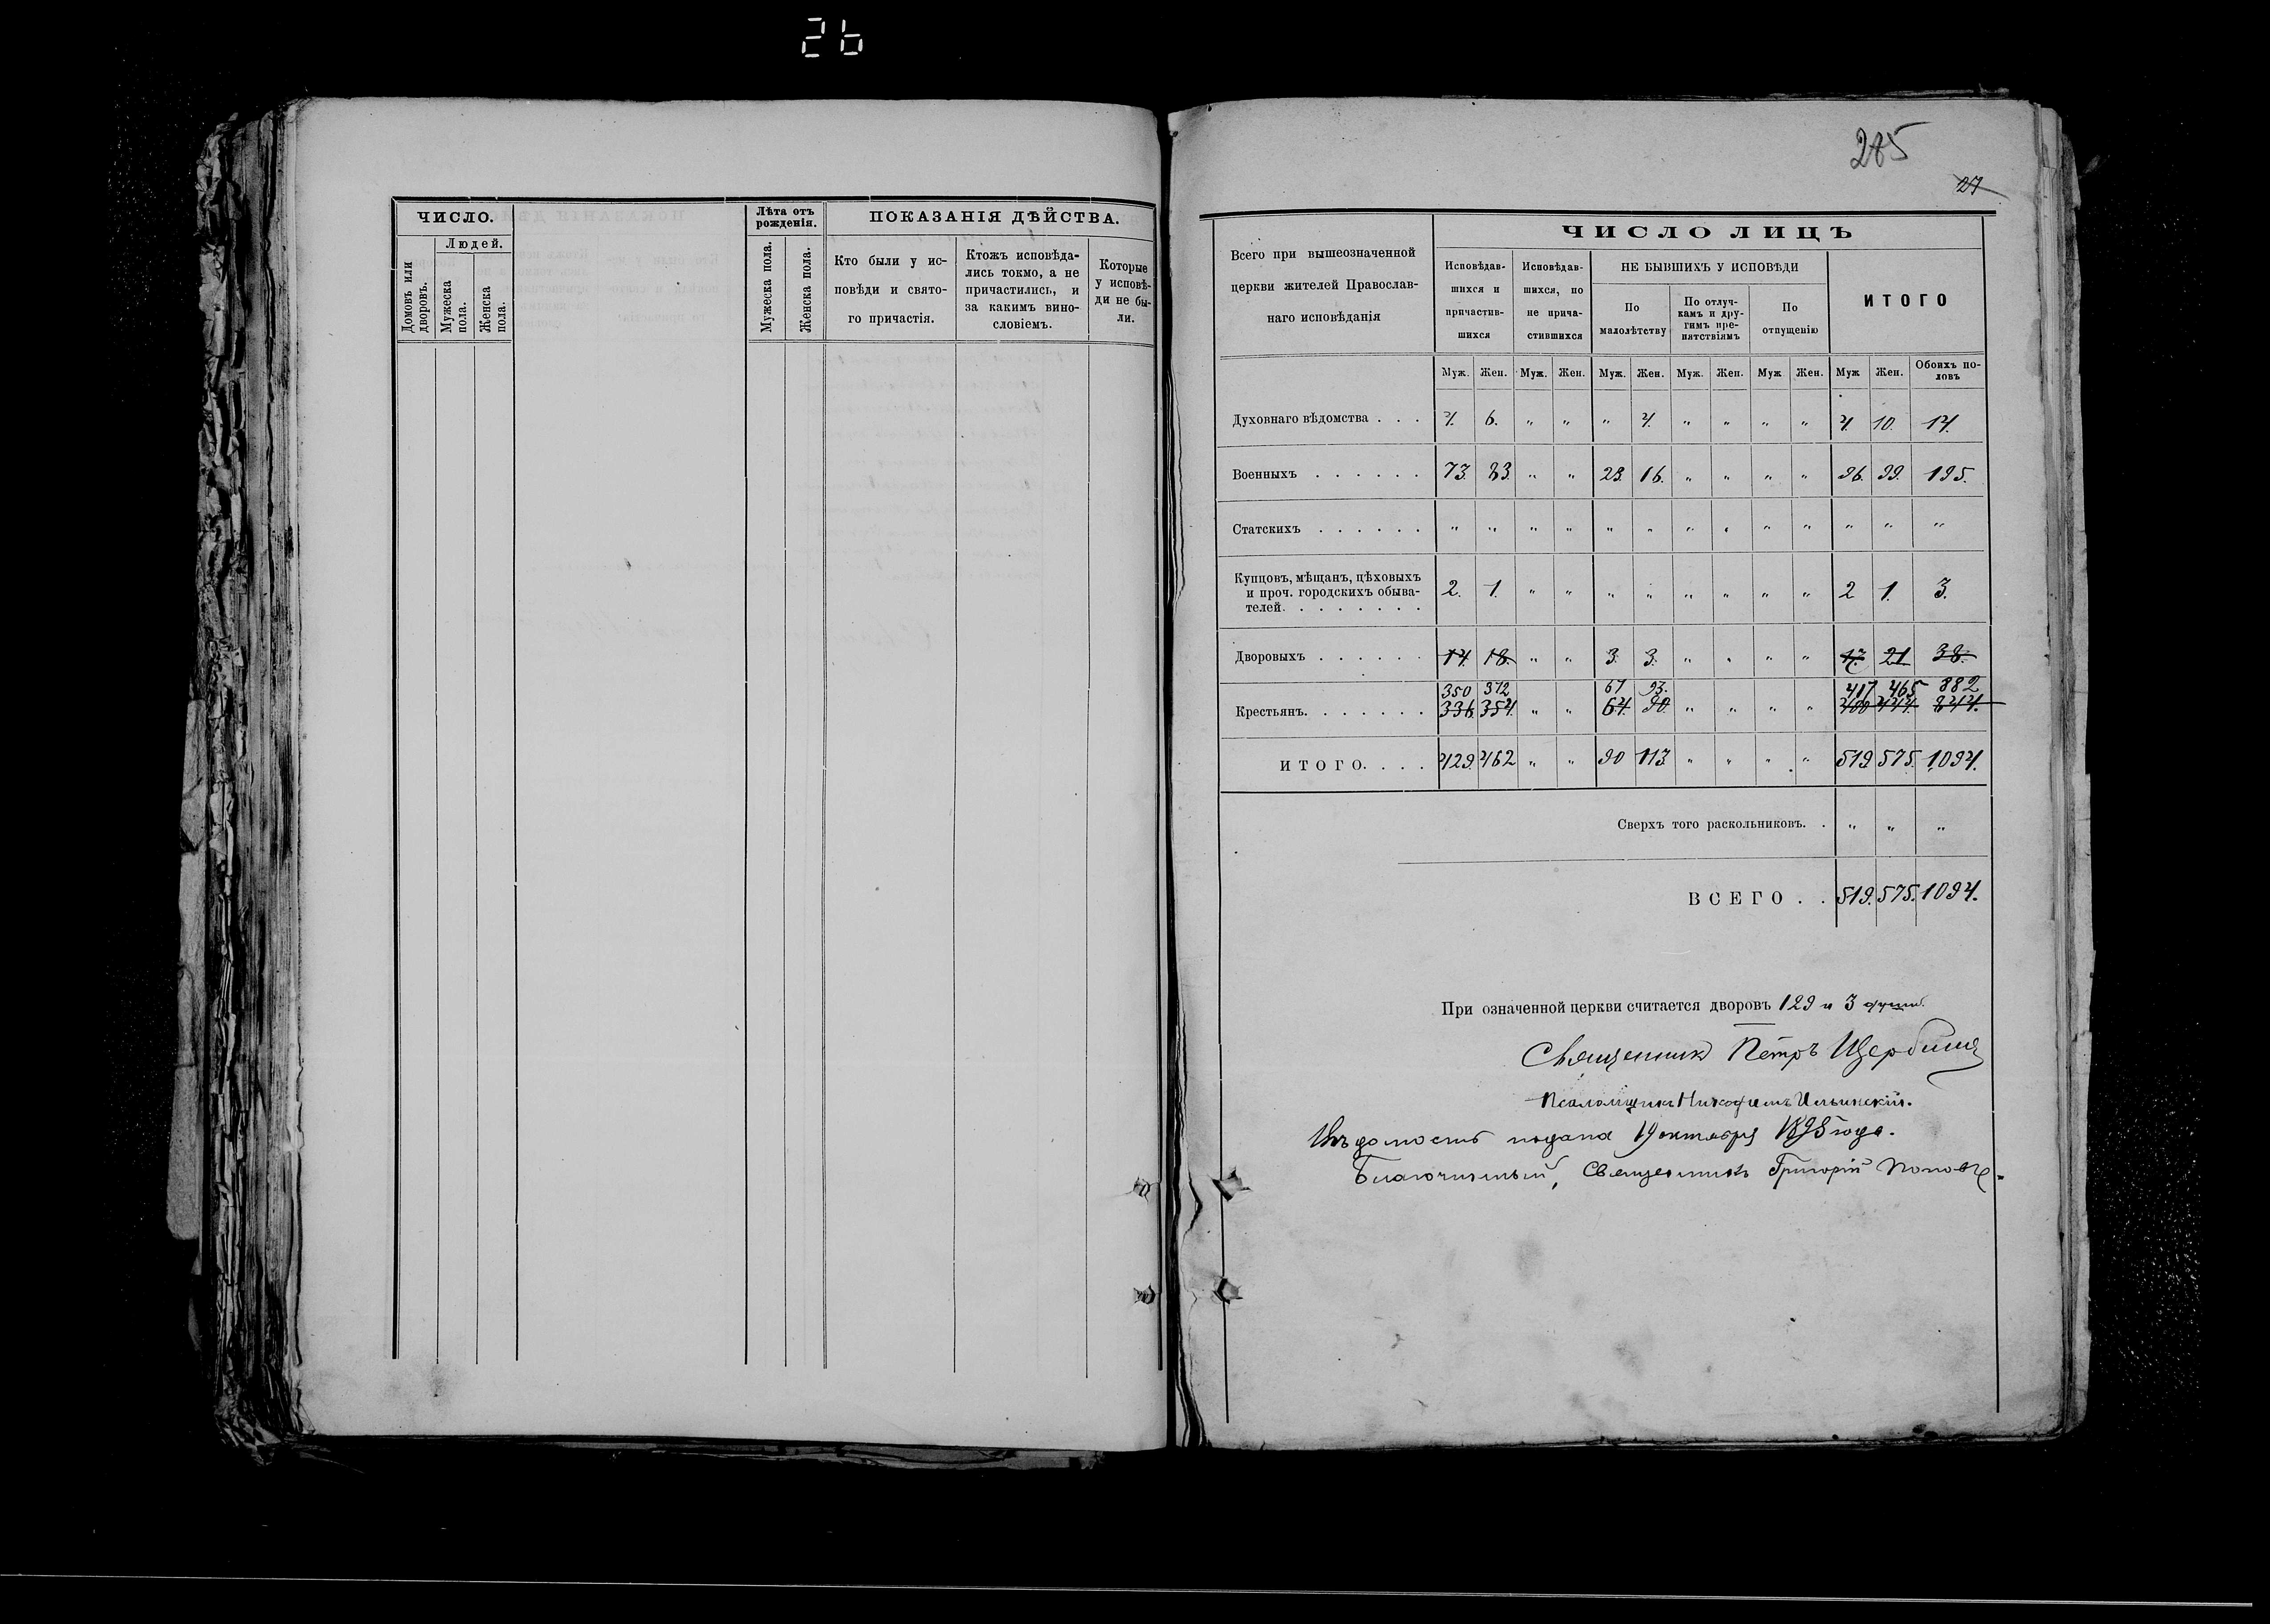 26
ЧИСЛО.
Людей.
Домовъ или дворовъ.
Мужеска пола.
Женска пола.
Лѣта отъ рожденія.
Мужеска пола.
Женска пола.
ПОКАЗАНІЯ ДѢЙСТВА.
Кто были у ис-
повѣди и свято-
го причастія.
Ктожъ исповѣда-
лись токмо, а не
причастились, и
за какимъ вино-
словіемъ.
Которые
у исповѣ-
ди не бы-
ли.
285
27
Всего при вышеозначенной
церкви жителей Православ-
наго исповѣданія
ЧИСЛО ЛИЦЪ
Исповѣдав-
шихся и
причастив-
шихся
Исповѣдав-
шихся, но
не прича-
стившихся
НЕ БЫВШИХЪ У ИСПОВѢДИ
По
малолѣтству
По отлуч-
камъ и дру-
гимъ пре-
пятствіямъ
По
отпущенію
ИТОГО
Муж. Жен. Муж. Жен. Муж. Жен. Муж. Жен. Муж Жен. Муж Жен. Обоихъ по-
ловъ
Духовнаго вѣдомства . . . 4. 6. „ „ „ 4. „ „ „ „ 4. 10. 14.
Военныхъ . . . . . . 73. 83. „ „ 23. 16. „ „ „ „ 96. 99. 195.
Статскихъ . . . . . . „ „ „ „ „ „ „ „ „ „ „ „ „
Купцовъ, мѣщанъ, цѣховыхъ
и проч. городскихъ обыва-
телей. . . . . . . . 2. 1. „ „ „ „ „ „ „ „ 2 1. 3.
Дворовыхъ . . . . . . 14. 18. „ „ 3. 3. „ „ „ „ 17. 21 38.
350 372 67 93. 417 465 882
Крестьянъ. . . . . . . 336. 354. „ „ 64. 90. „ „ „ „ 400 444. 844.
ИТОГО. . . . 429. 462 „ „ 90 113 „ „ „ „ 519 575. 1094.
Сверхъ того раскольниковъ. . „ „ „
ВСЕГО . . 519. 575. 1094.
При означенной церкви считается дворовъ 129 и 3
Священникъ Петръ Щербина
Псаломщикъ Никодимъ Ильинскій.
Вѣдомость подана 19 октября 1898 года.
Благочинный, Священникъ Григорій Поповъ.